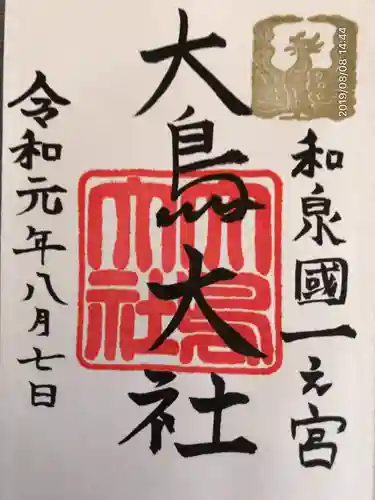 和泉國一之宮
大鳥大社
大鳥大社
令和元年八月七日
2019/08/08 14:44